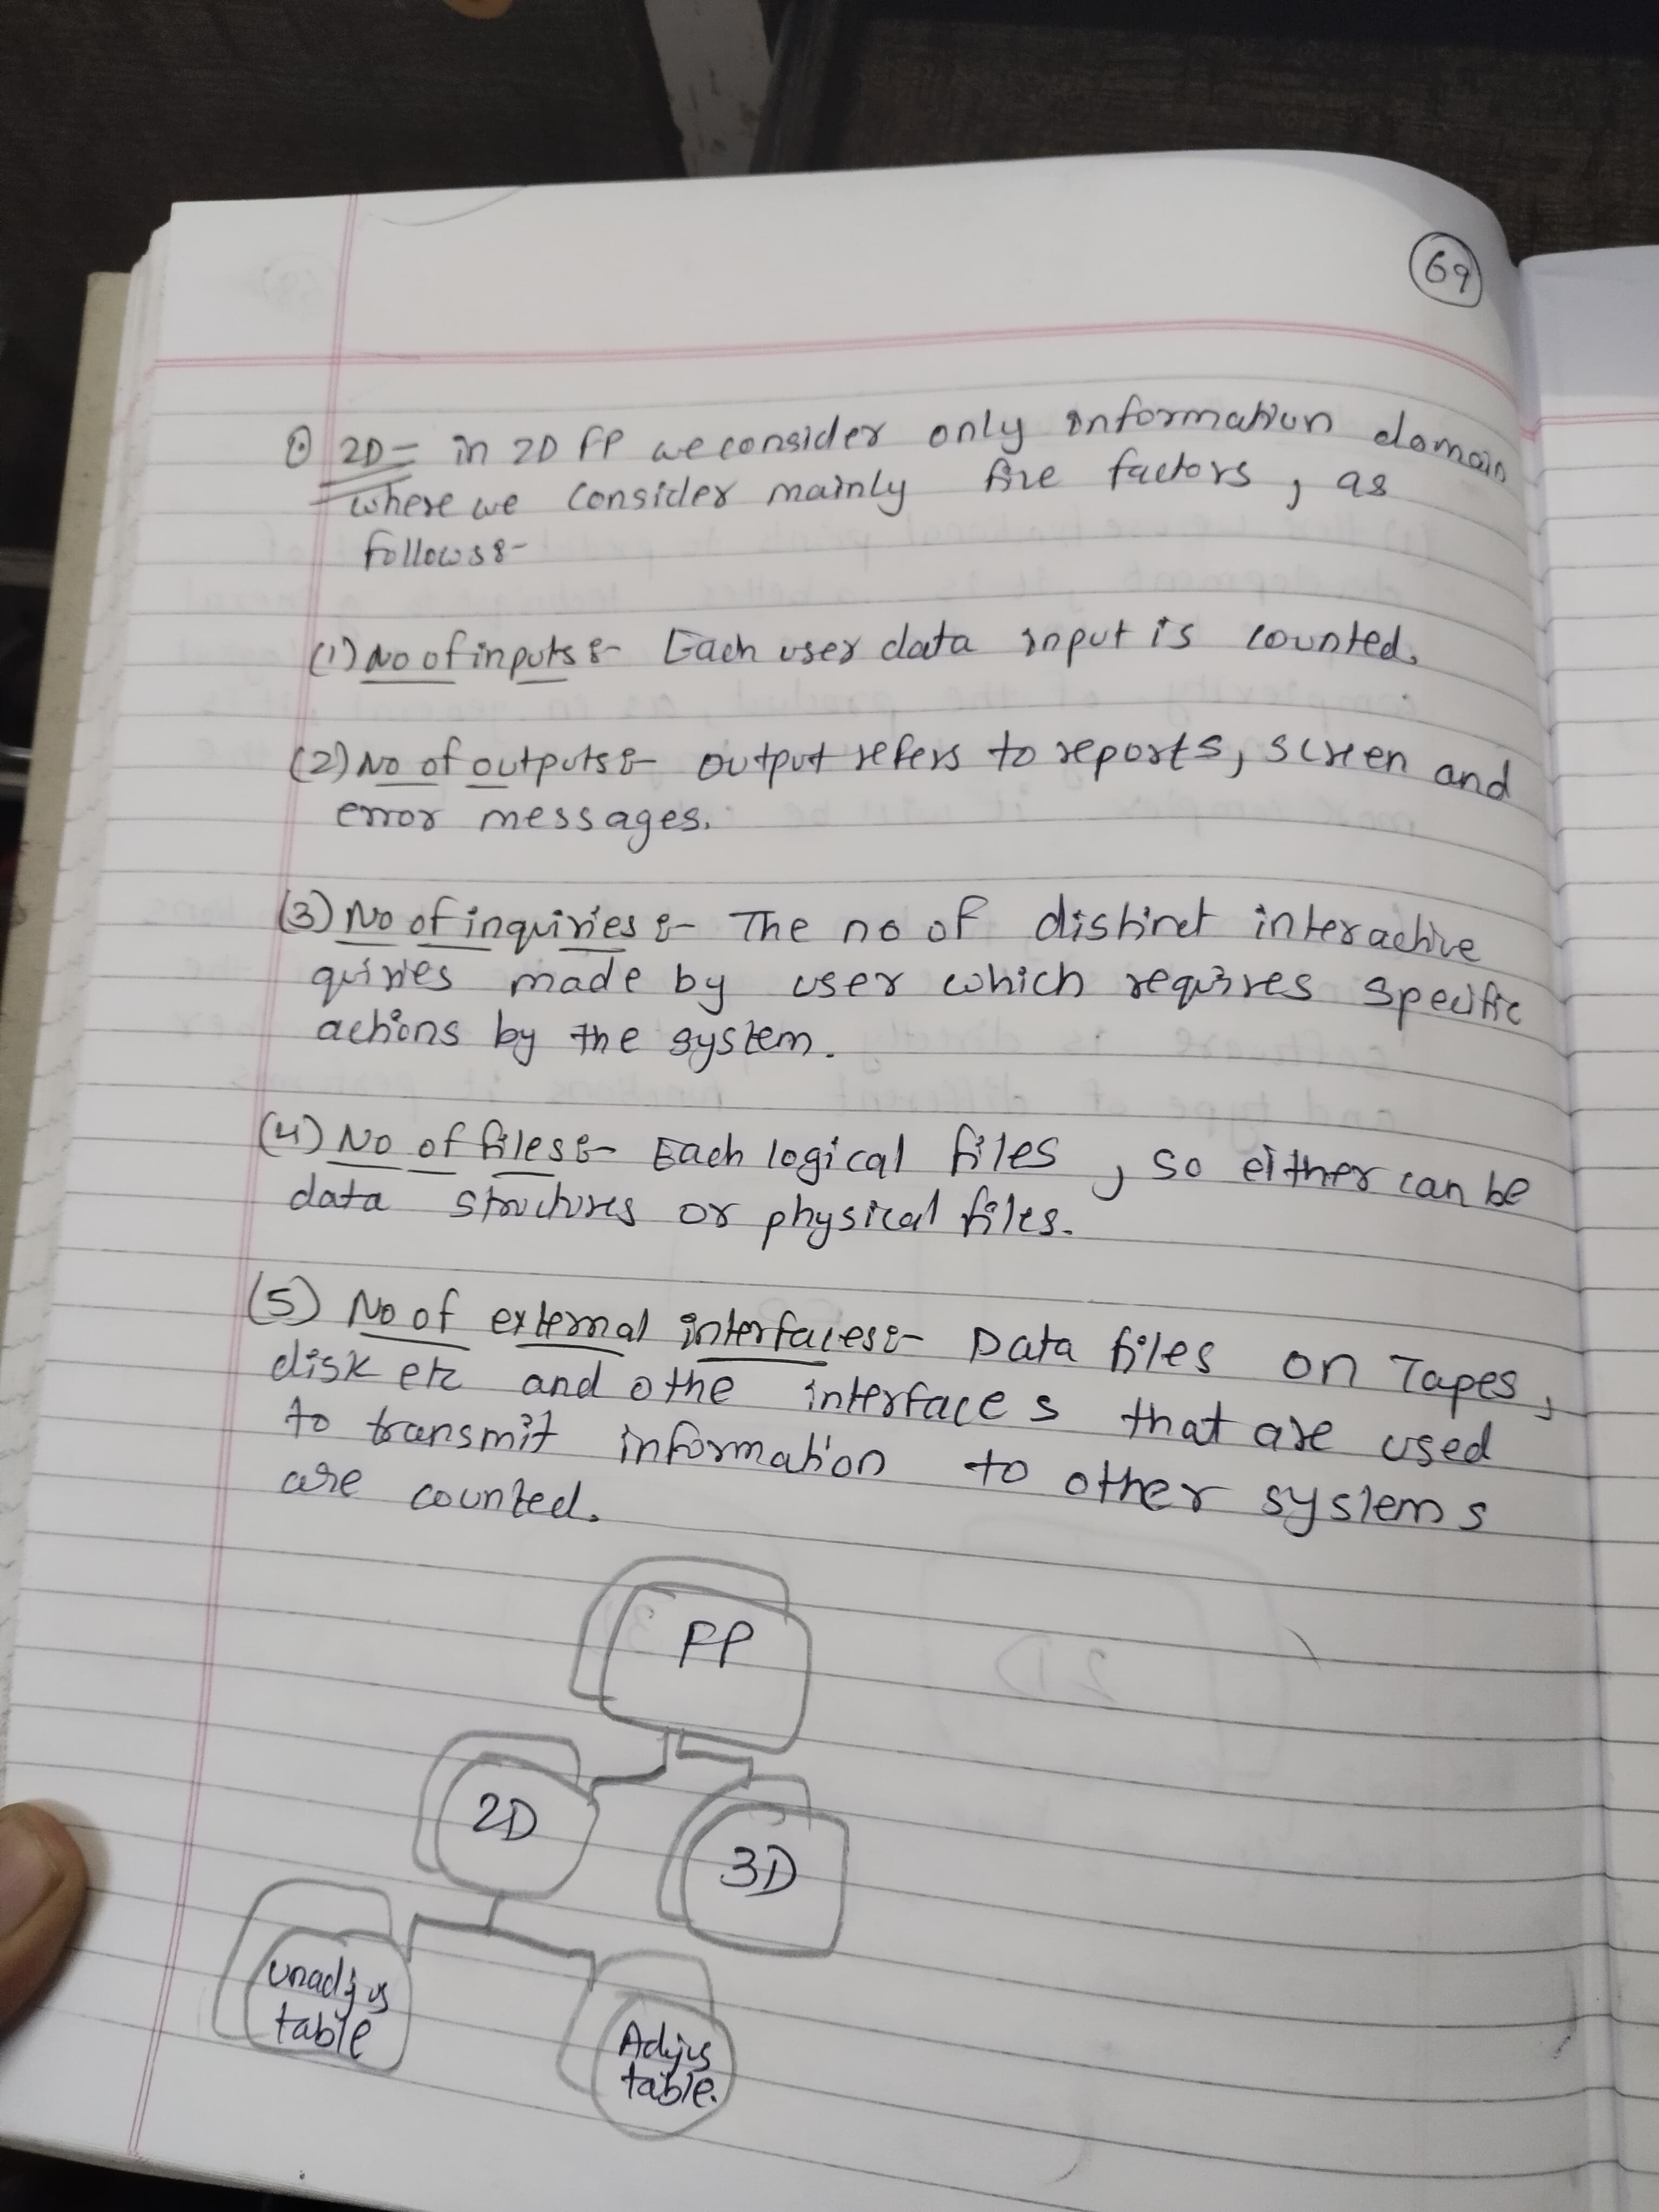 69
⊙ 2D = in 2D FP we consider only information domain
where we consider mainly five factors, as
follows:-
(1) No of inputs:- Each user data input is counted.
(2) No of outputs:- output refers to reports, screen and
error messages.
(3) No of inquiries:- The no of distinct interactive
quiries made by user which requires specific
actions by the system.
(4) No of files:- Each logical files, so either can be
data structures or physical files.
(5) No of external interfaces:- Data files on Tapes,
disk etc and othe interfaces that are used
to transmit information to other systems
are counted.
FP
2D
3D
Unadjus
table
Adjus
table.